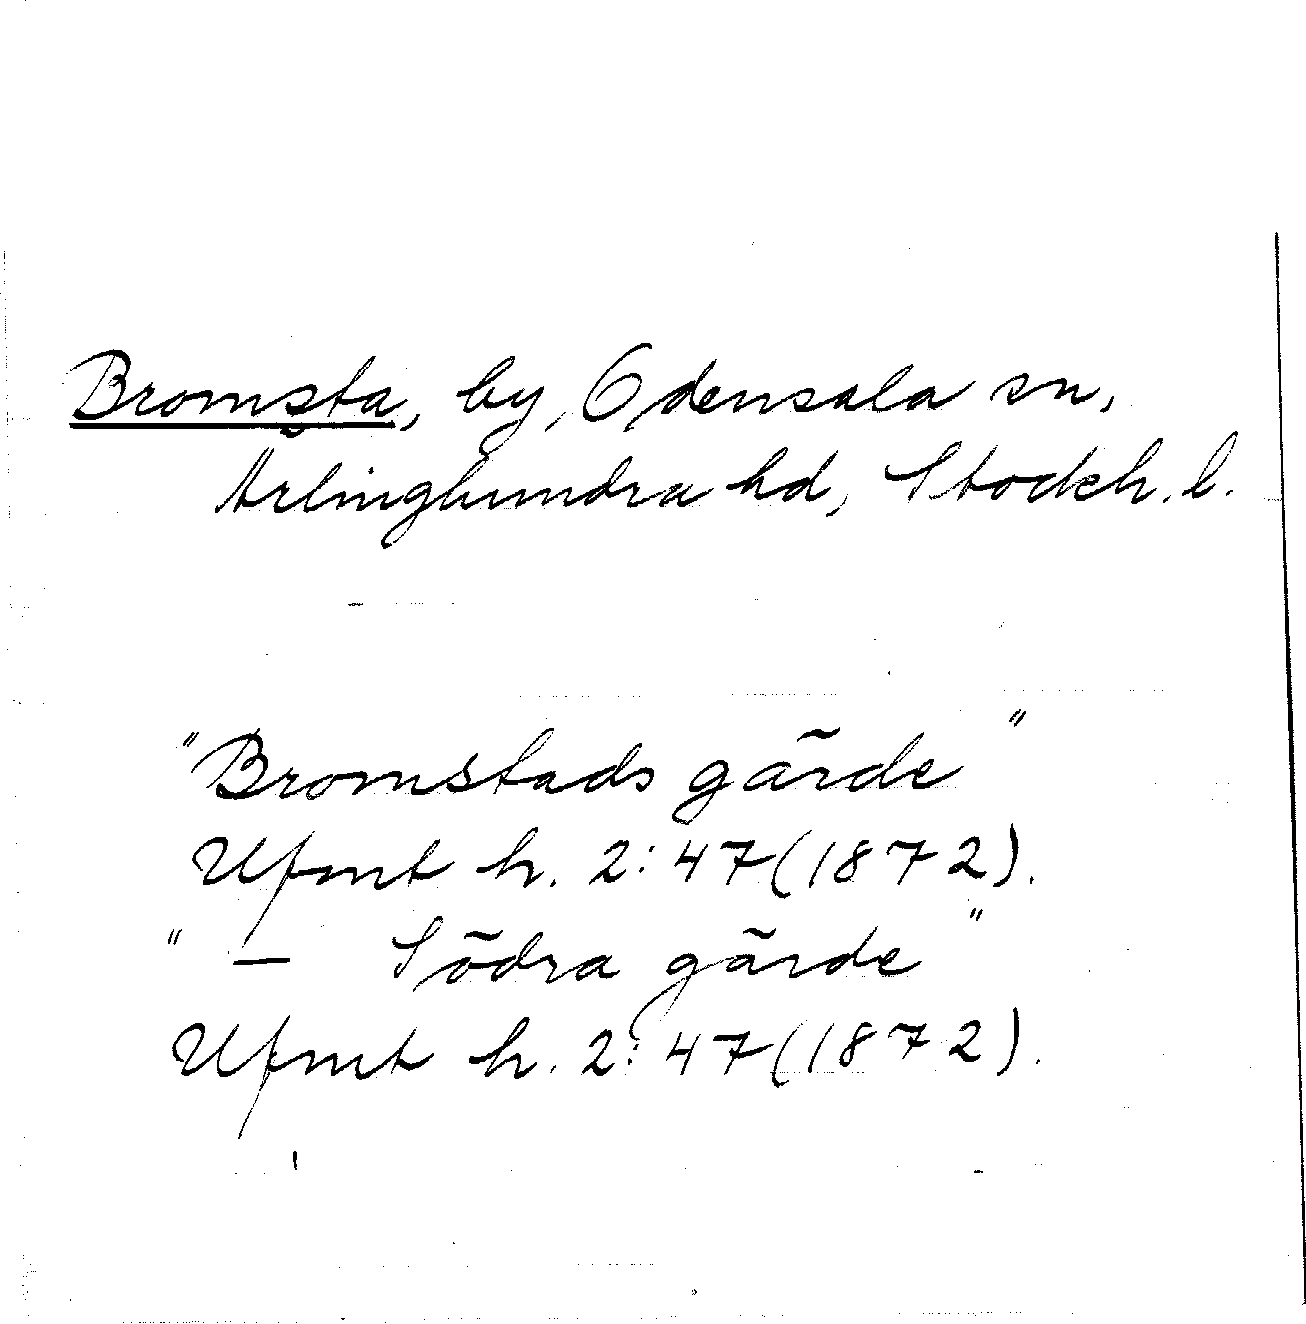 Bromsta, by, Odensala sn,
Ärlinghundra hd, Stockh. l.
"Bromstads gärde"
Ufmt h. 2:47 (1872).
" — Södra gärde"
Ufmt h. 2:47 (1872).